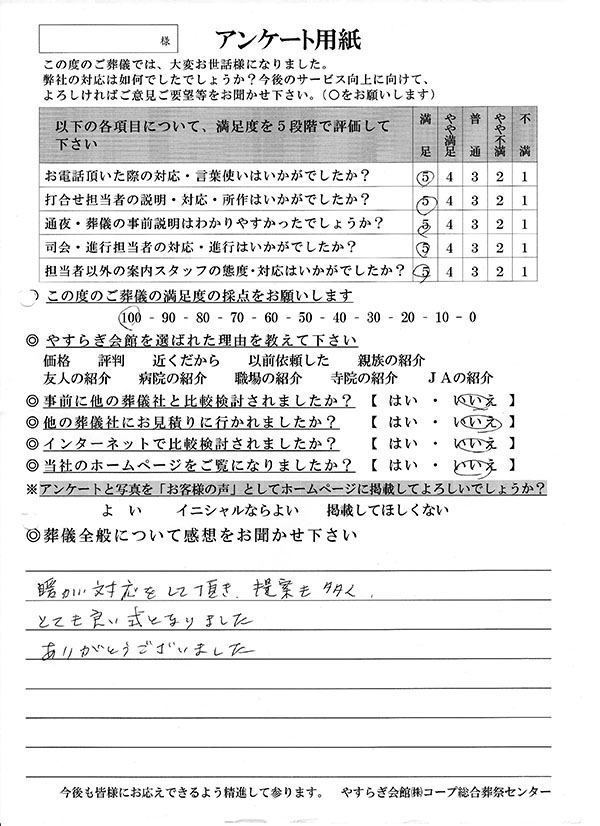 様
アンケート用紙
この度のご葬儀では、大変お世話様になりました。
弊社の対応は如何でしたでしょうか？今後のサービス向上に向けて、
よろしければご意見ご要望等をお聞かせ下さい。（○をお願いします）
以下の各項目について、満足度を５段階で評価して下さい 満足 やや満足 普通 やや不満 不満
お電話頂いた際の対応・言葉使いはいかがでしたか？ 5 4 3 2 1
打合せ担当者の説明・対応・所作はいかがでしたか？ 5 4 3 2 1
通夜・葬儀の事前説明はわかりやすかったでしょうか？ 5 4 3 2 1
司会・進行担当者の対応・進行はいかがでしたか？ 5 4 3 2 1
担当者以外の案内スタッフの態度・対応はいかがでしたか？ 5 4 3 2 1
この度のご葬儀の満足度の採点をお願いします
100 - 90 - 80 - 70 - 60 - 50 - 40 - 30 - 20 - 10 - 0
◎ やすらぎ会館を選ばれた理由を教えて下さい
価格 評判 近くだから 以前依頼した 親族の紹介
友人の紹介 病院の紹介 職場の紹介 寺院の紹介 ＪＡの紹介
◎事前に他の葬儀社と比較検討されましたか？ 【 はい ・ いいえ 】
◎他の葬儀社にお見積りに行かれましたか？ 【 はい ・ いいえ 】
◎インターネットで比較検討されましたか？ 【 はい ・ いいえ 】
◎当社のホームページをご覧になりましたか？ 【 はい ・ いいえ 】
※アンケートと写真を「お客様の声」としてホームページに掲載してよろしいでしょうか？
よい イニシャルならよい 掲載してほしくない
◎葬儀全般について感想をお聞かせ下さい
暖かい対応をして頂き、提案も多く、
とても良い式となりました
ありがとうございました
今後も皆様にお応えできるよう精進して参ります。 やすらぎ会館㈱コープ総合葬祭センター